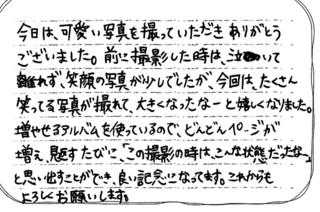 今日は、可愛い写真を撮っていただき ありがとう
ございました。前に撮影した時は、泣いて
離れず、笑顔の写真が少しでしたが、今回は、たくさん
笑ってる写真が撮れて、大きくなったなーと嬉しくなりました。
増やせるアルバムを使っているので、どんどんページが
増え、見返すたびに、「この撮影の時は、こんな状態だったな」
と思い出すことができ、良い記念になってます。これからも
よろしくお願いします。